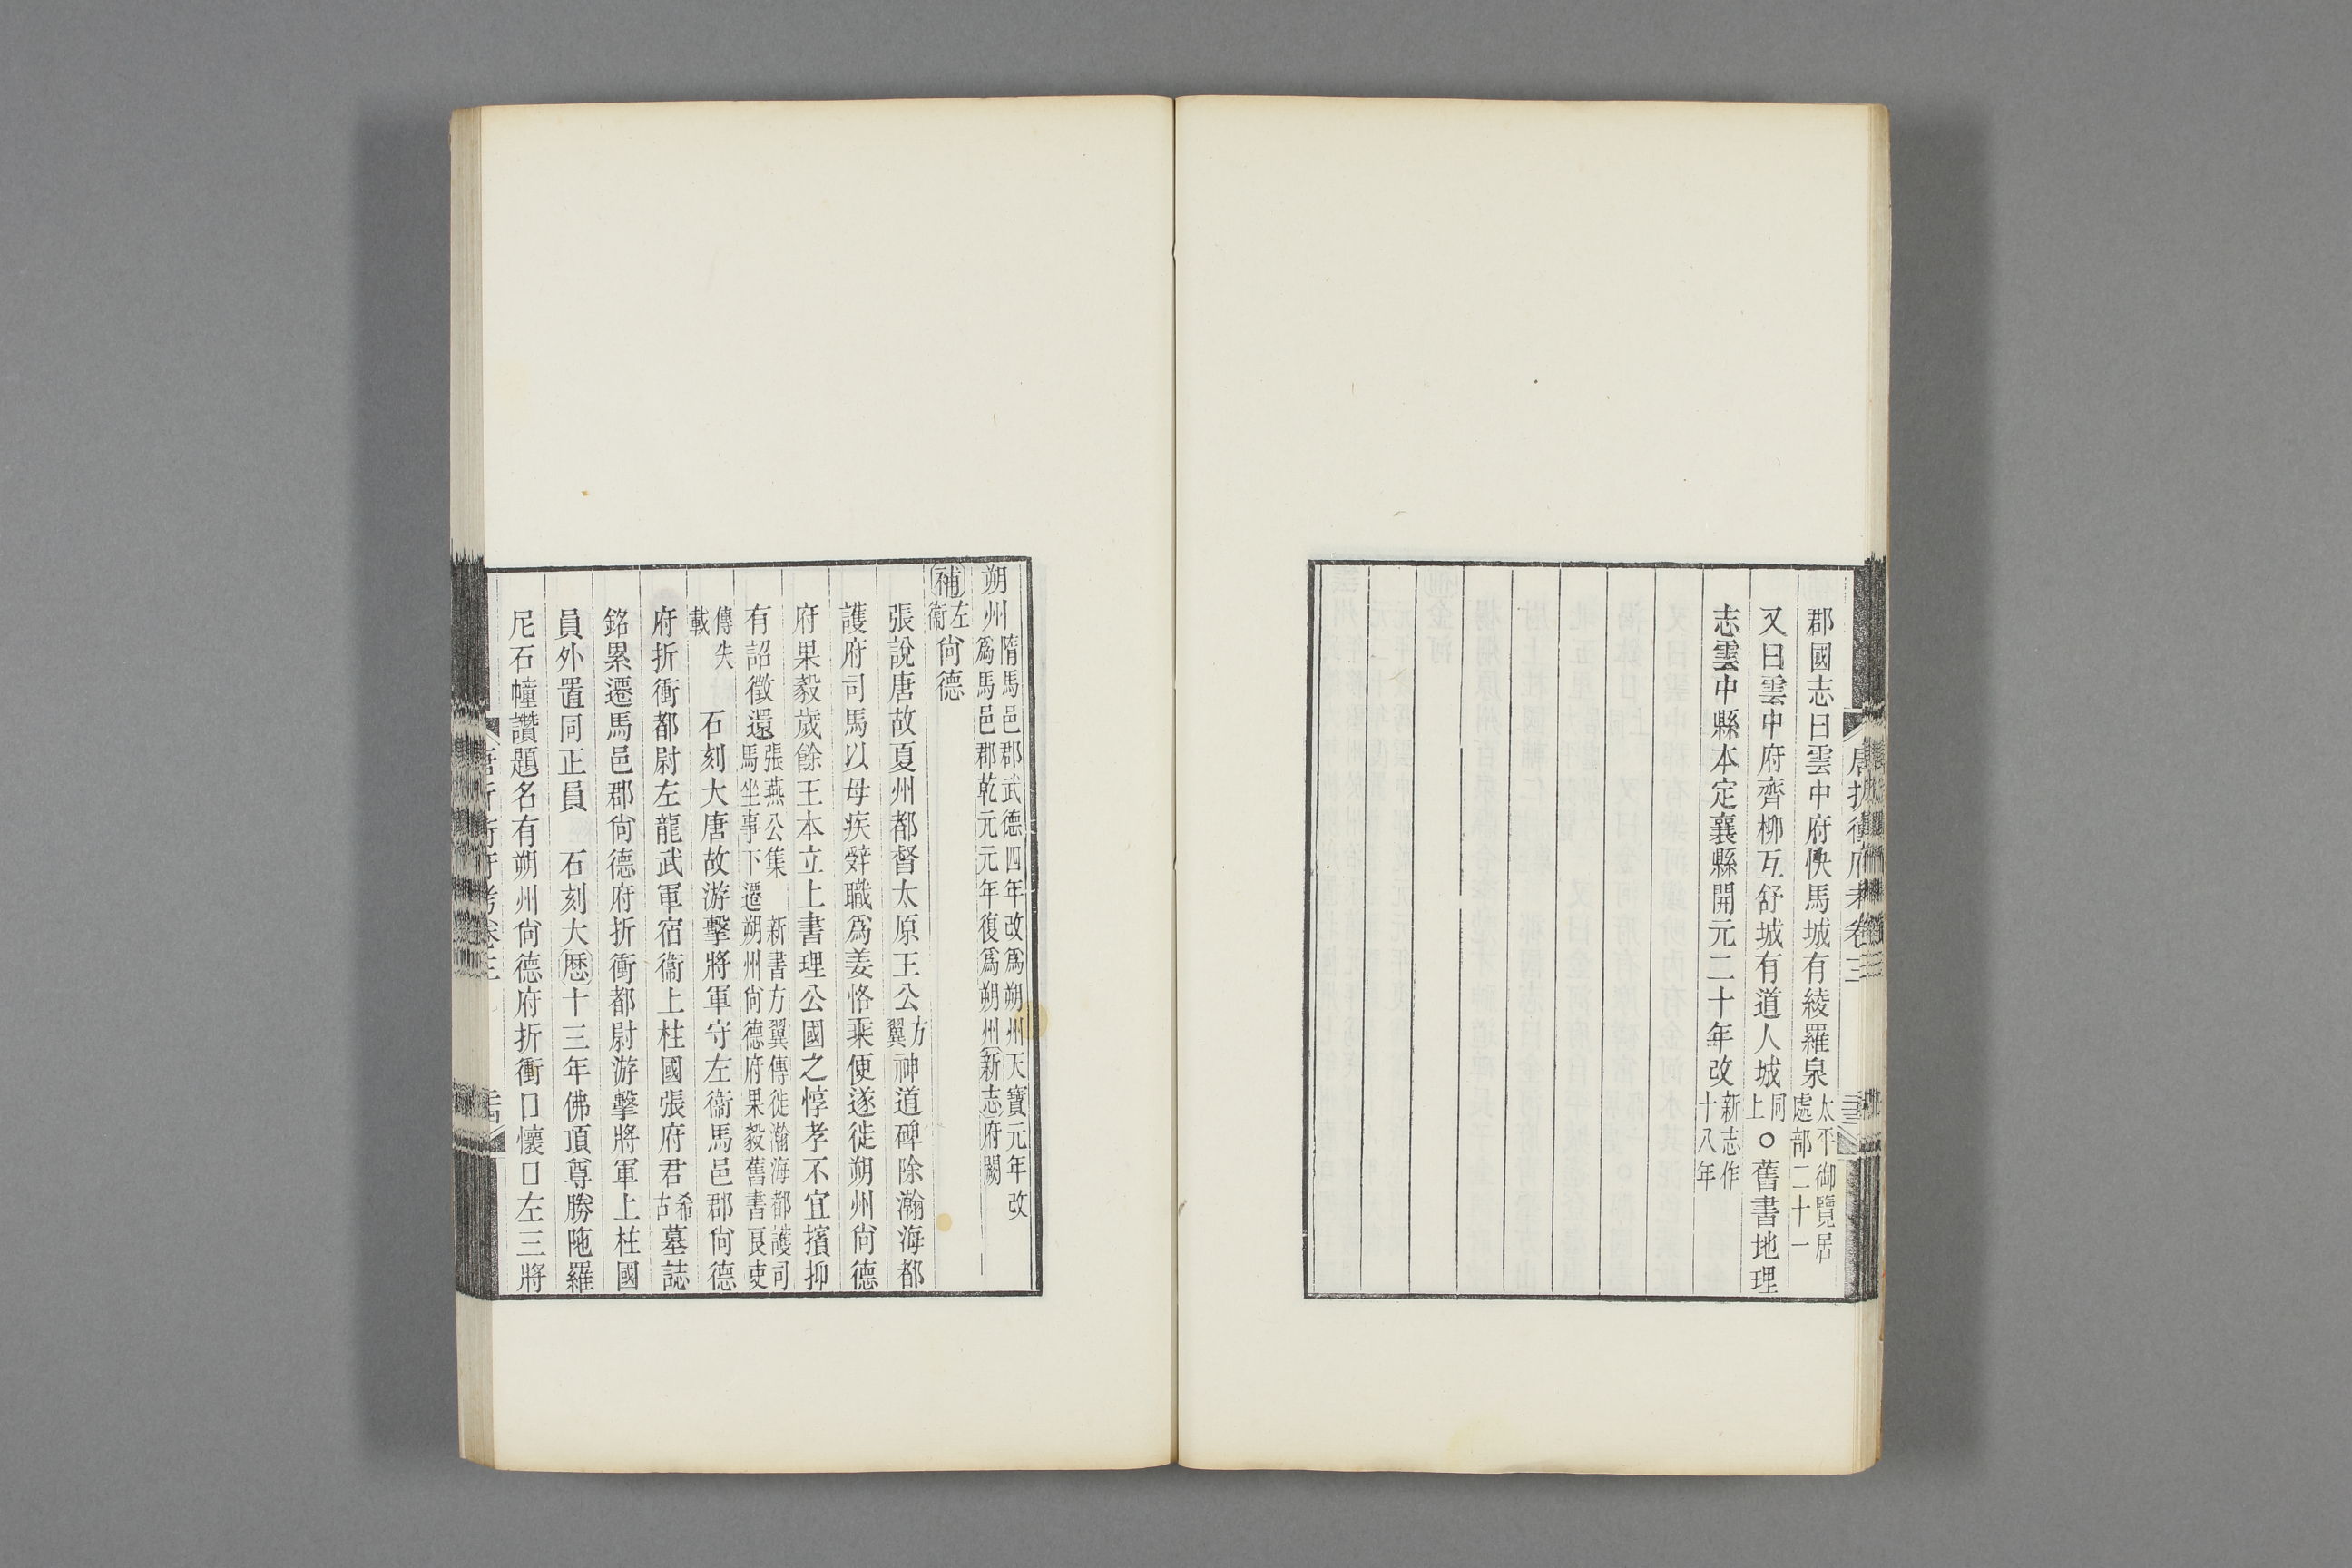 唐折衝府考卷三
郡國志曰雲中府怏馬城有綾羅泉太平御覽居處部二十一
又曰雲中府齊柳互舒城有道人城同上○舊書地理
志雲中縣本定襄縣開元二十年改新志作十八年
朔州隋馬邑郡武德四年改爲朔州天寶元年改爲馬邑郡乾元元年復爲朔州新志府闕
補左衞尙德
張說唐故夏州都督太原王公方翼神道碑除瀚海都
護府司馬以母疾辭職爲姜恪乘便遂徙朔州尙德
府果毅歲餘王本立上書理公國之惇孝不宜擯抑
有詔徵還張燕公集 新書方翼傳徙瀚海都護司馬坐事下遷朔州尙德府果毅舊書良吏
傳失載 石刻大唐故游擊將軍守左衞馬邑郡尙德
府折衝都尉左龍武軍宿衞上柱國張府君希古墓誌
銘累遷馬邑郡尙德府折衝都尉游擊將軍上柱國
員外置同正員 石刻大歷十三年佛頂尊勝陁羅
尼石幢讚題名有朔州尙德府折衝口懷口左三將
唐折衝府考卷三